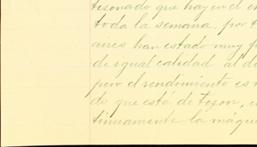 tesonado que hay en el en
toda la semana, por t
aires han estado muy f
de igual calidad al de
pero el rendimiento es m
do que está de tezon, e
tinuamente la máqui